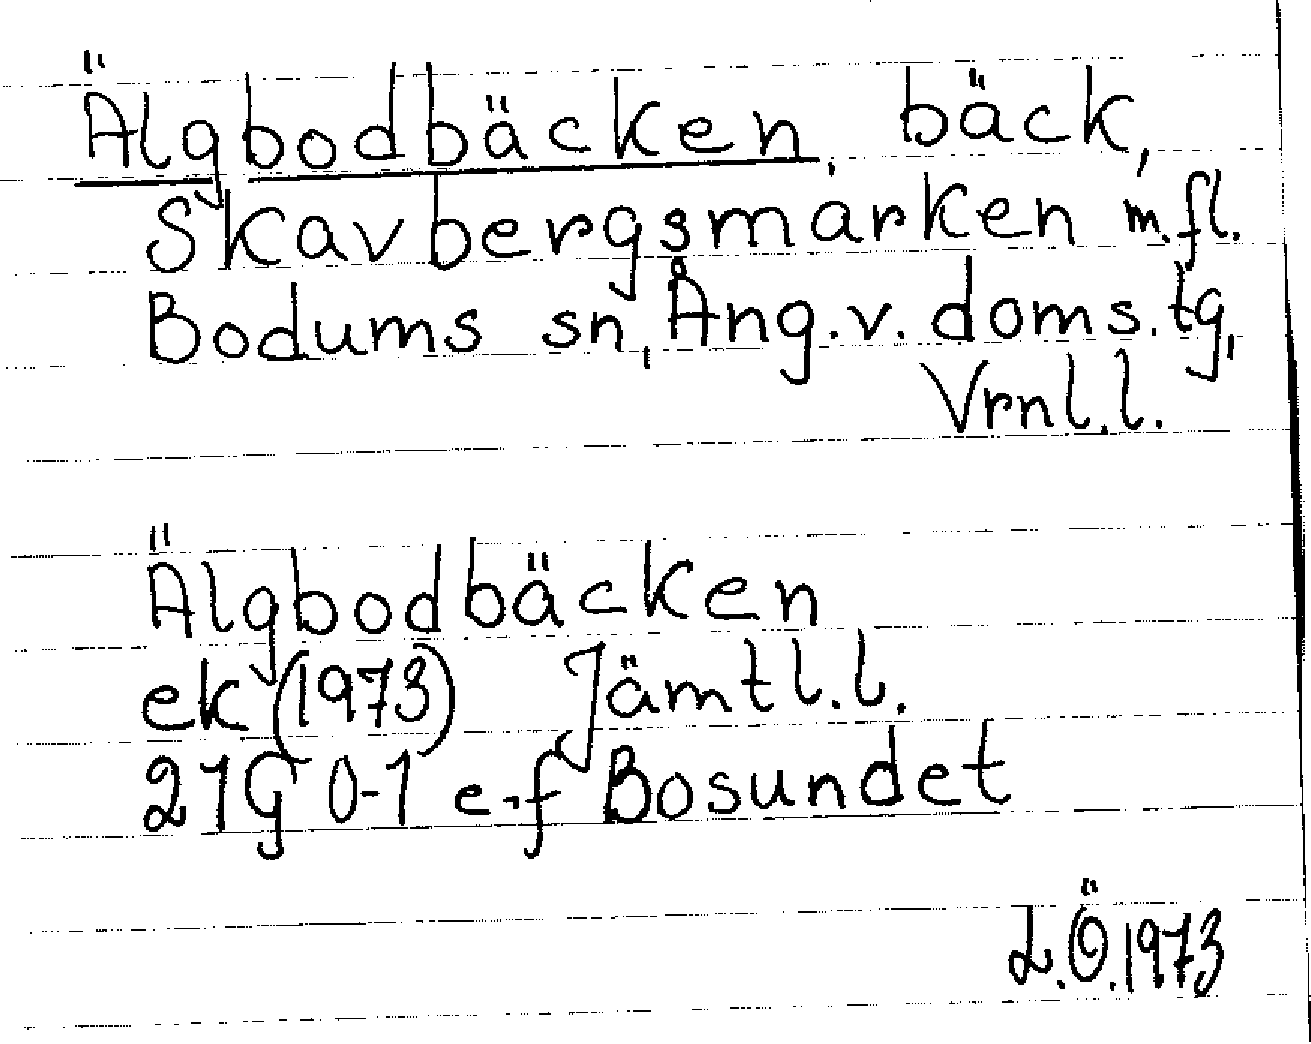 Älgbodbäcken, bäck,
Skavbergsmarken m.fl.
Bodums sn, Ång.v. doms.tg,
Vrnl.l.
Älgbodbäcken
ek (1973) Jämtl.l.
21G 0-1 e-f Bosundet
L.Ö.1973